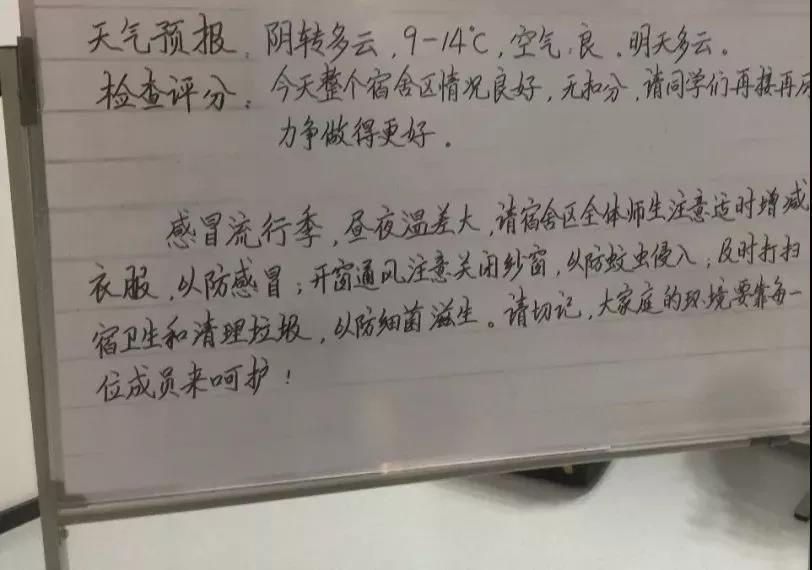 天气预报：阴转多云，9-14℃，空气：良。明天多云。
检查评分：今天整个宿舍区情况良好，无扣分，请同学们再接再厉
力争做得更好。
感冒流行季，昼夜温差大，请宿舍区全体师生注意适时增减
衣服，以防感冒；开窗通风注意关闭纱窗，以防蚊虫侵入；及时打扫
宿卫生和清理垃圾，以防细菌滋生。请切记，大家庭的环境要靠每一
位成员来呵护！